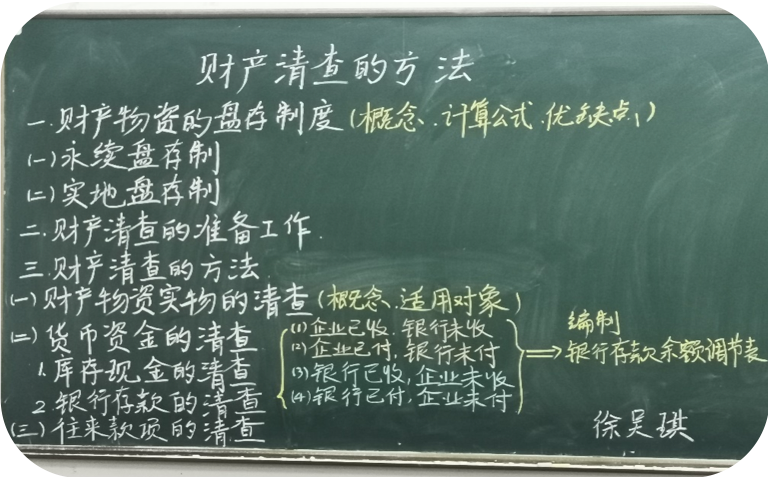 财产清查的方法
一.财产物资的盘存制度(概念.计算公式.优缺点)
(一)永续盘存制
(二)实地盘存制
二.财产清查的准备工作.
三.财产清查的方法
(一)财产物资实物的清查(概念.适用对象)
(二)货币资金的清查
1.库存现金的清查
2.银行存款的清查
(1)企业已收,银行未收
(2)企业已付,银行未付
(3)银行已收,企业未收
(4)银行已付,企业未付
编制
银行存款余额调节表
(三)往来款项的清查
徐吴琪